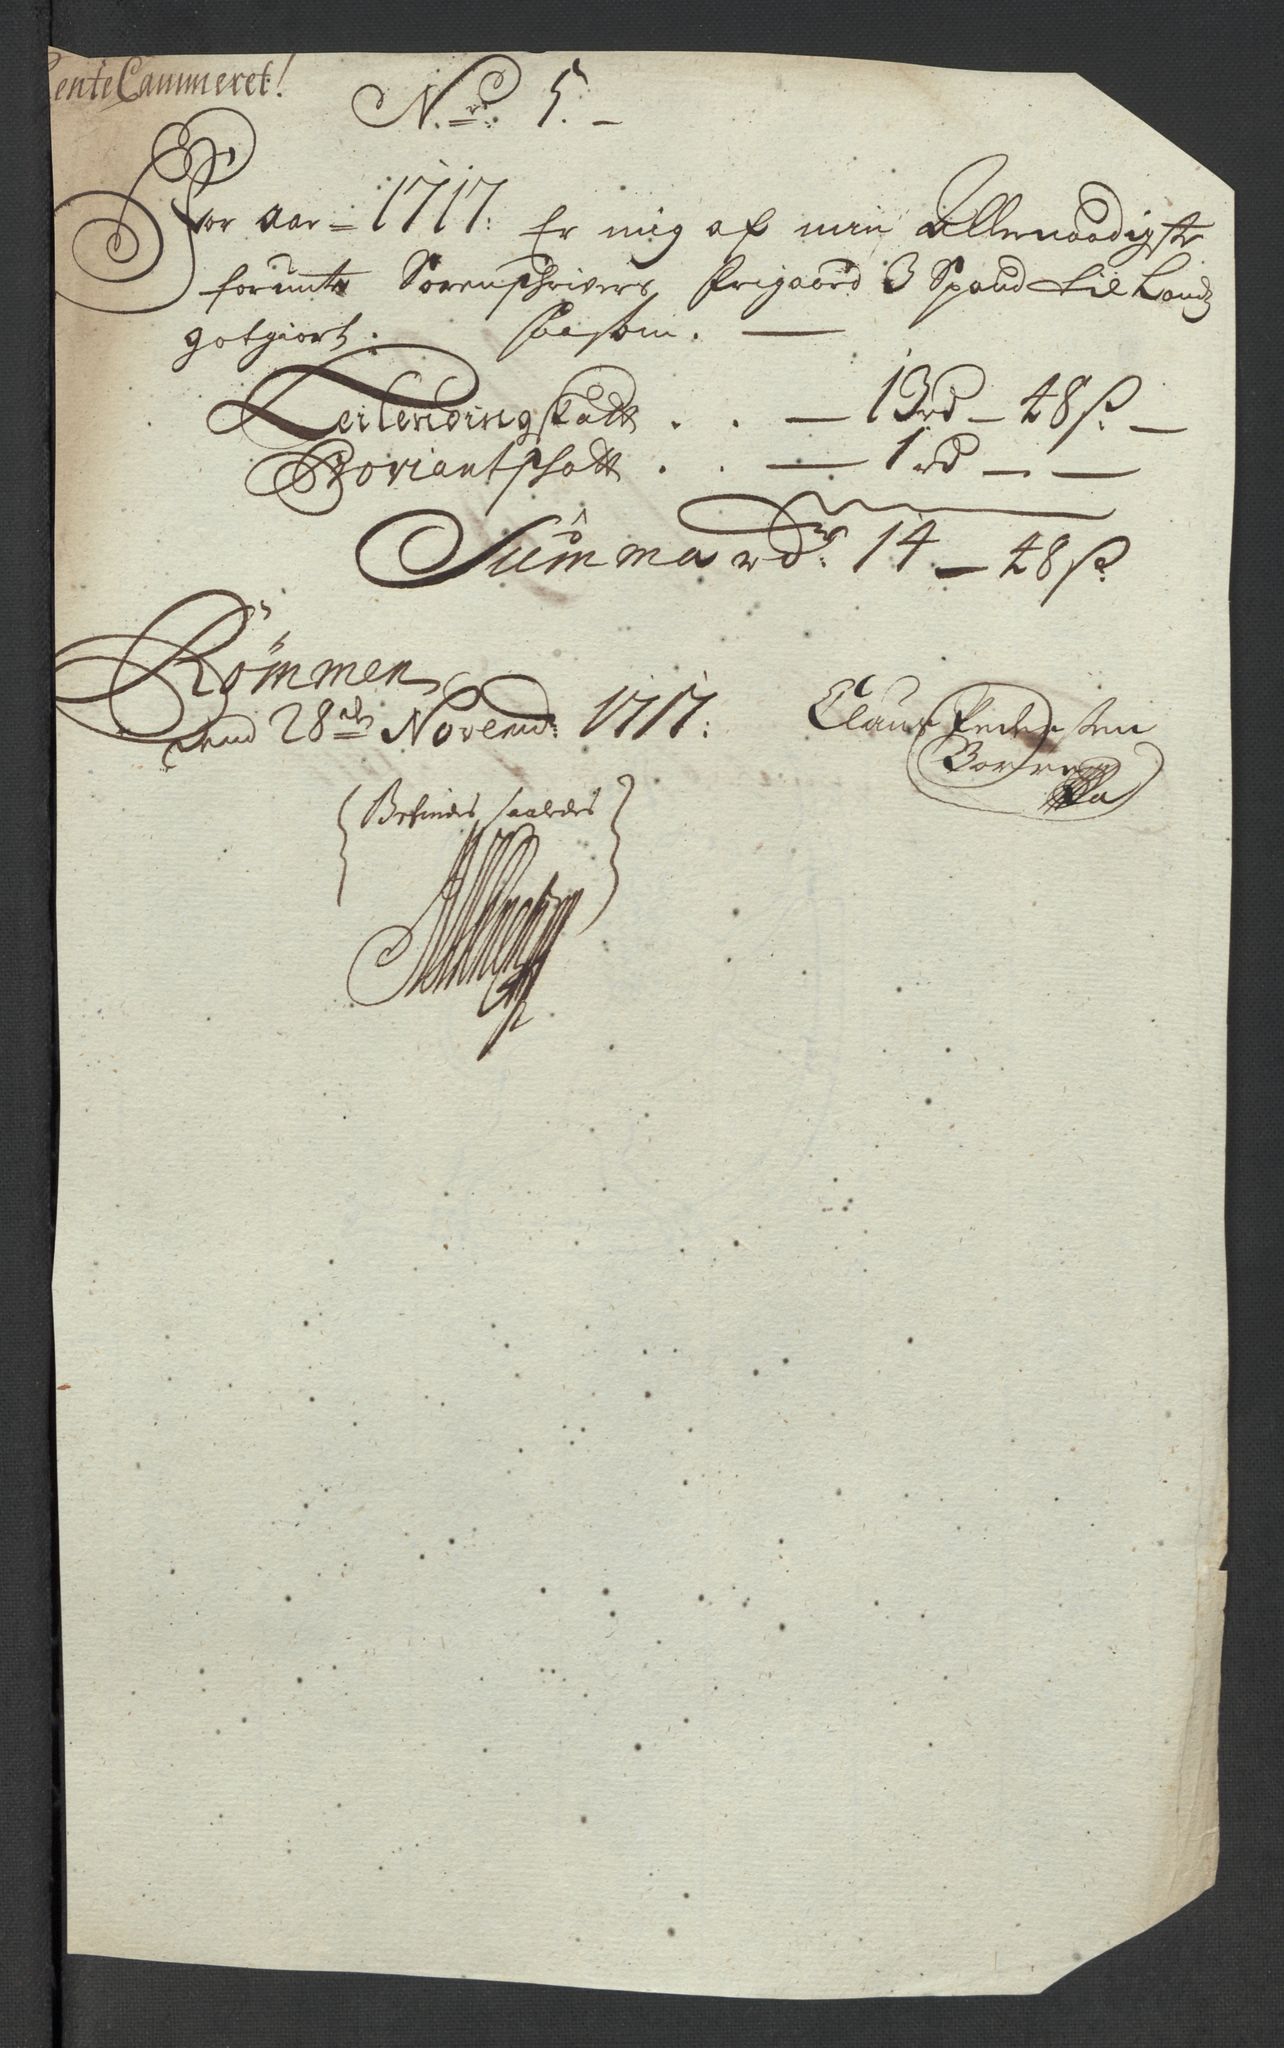 RenteCammeret!
No. 5.
For Aar 1717: Er mig af min Allernaadigste
forunte Sorenschrivers Frigaard 3 Spand til Land
gotgiort. saasom.
Leilendingskatt . . 13 rd 48 s.
Proviantschatt . . 1 rd
Summa rdr. 14 48 s.
Römmen
dend 28de Novemb: 1717:
Claus Pedersen
Borre
Befindes saaledes